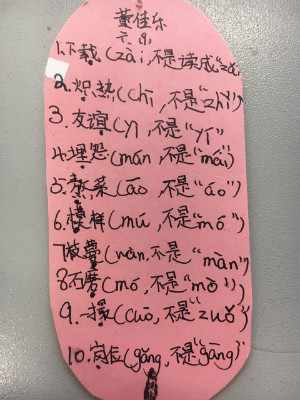 董佳乐
1.下载(zài,不是读成"zǎ
2.炽热(chì,不是"zhì")
3.友谊(yì,不是"yí"
4.埋怨(mán,不是"mái)
5.熬菜(āo,不是"áo")
6.模样(mú,不是"mó")
7.枝蔓(wàn,不是"màn")
8.石磨(mó,不是"mò"))
9.一撮(cuō,不是"zuǒ")
10.岗位(gǎng,不是"gāng)"